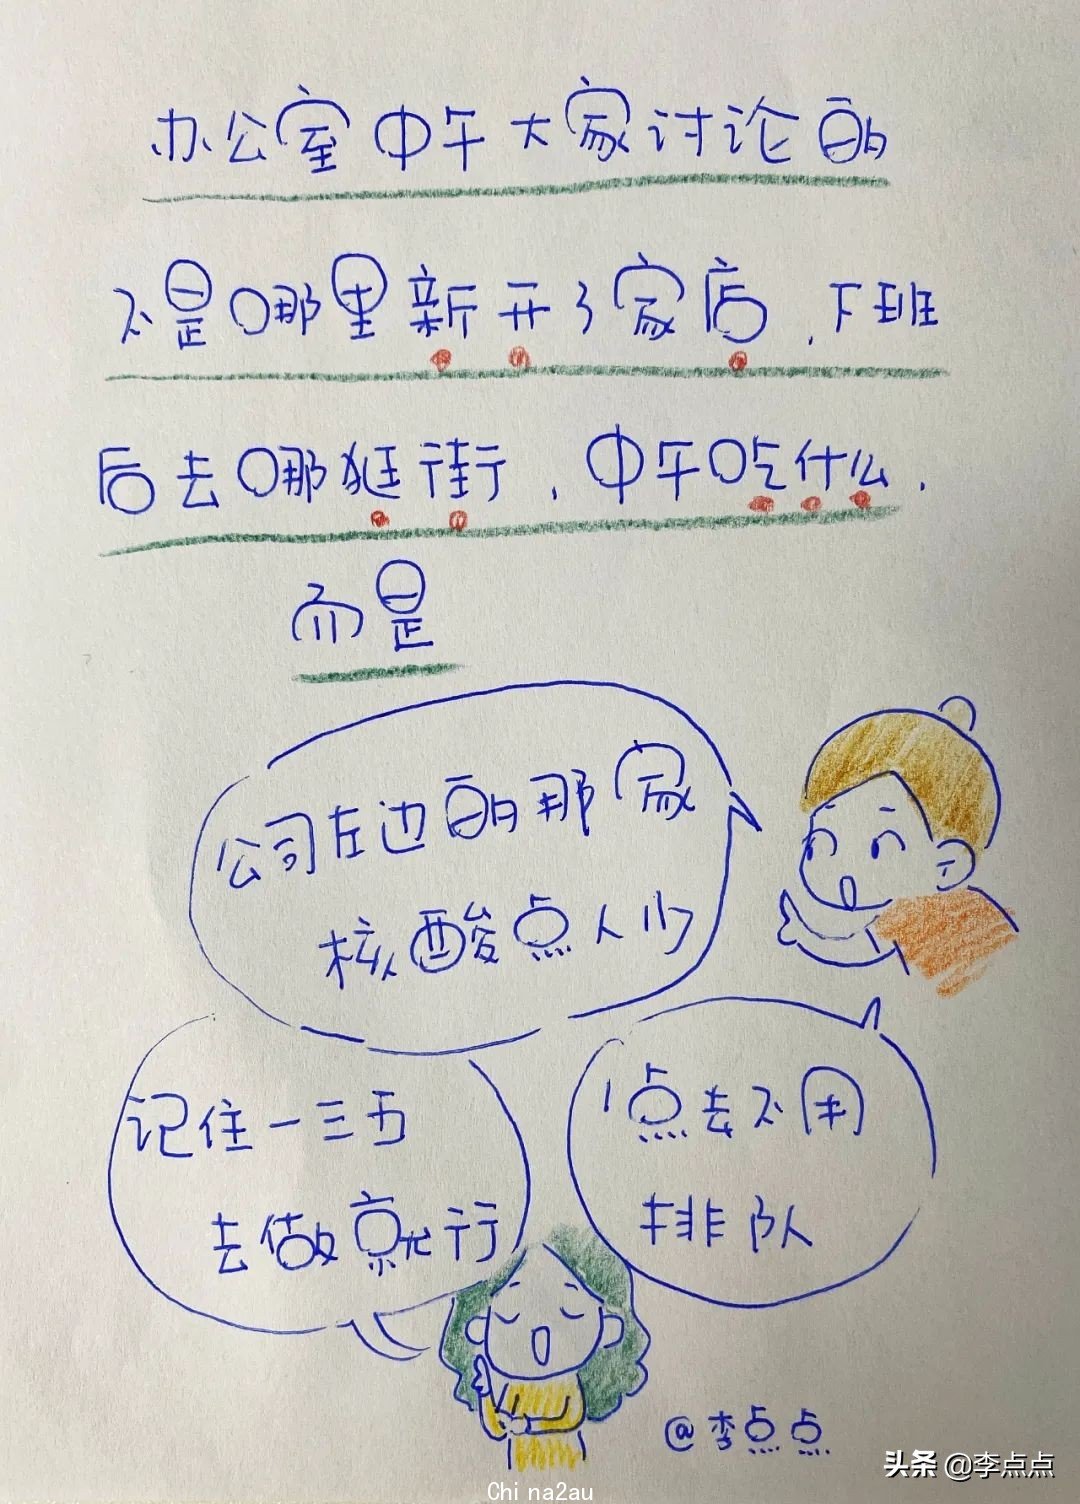 办公室中午大家讨论的
不是哪里新开了家店,下班
后去哪逛街,中午吃什么,
而是
公司左边的那家
核酸点人少
1点去不用
排队
记住一三五
去做就行
@李点点
头条 @李点点
China2au